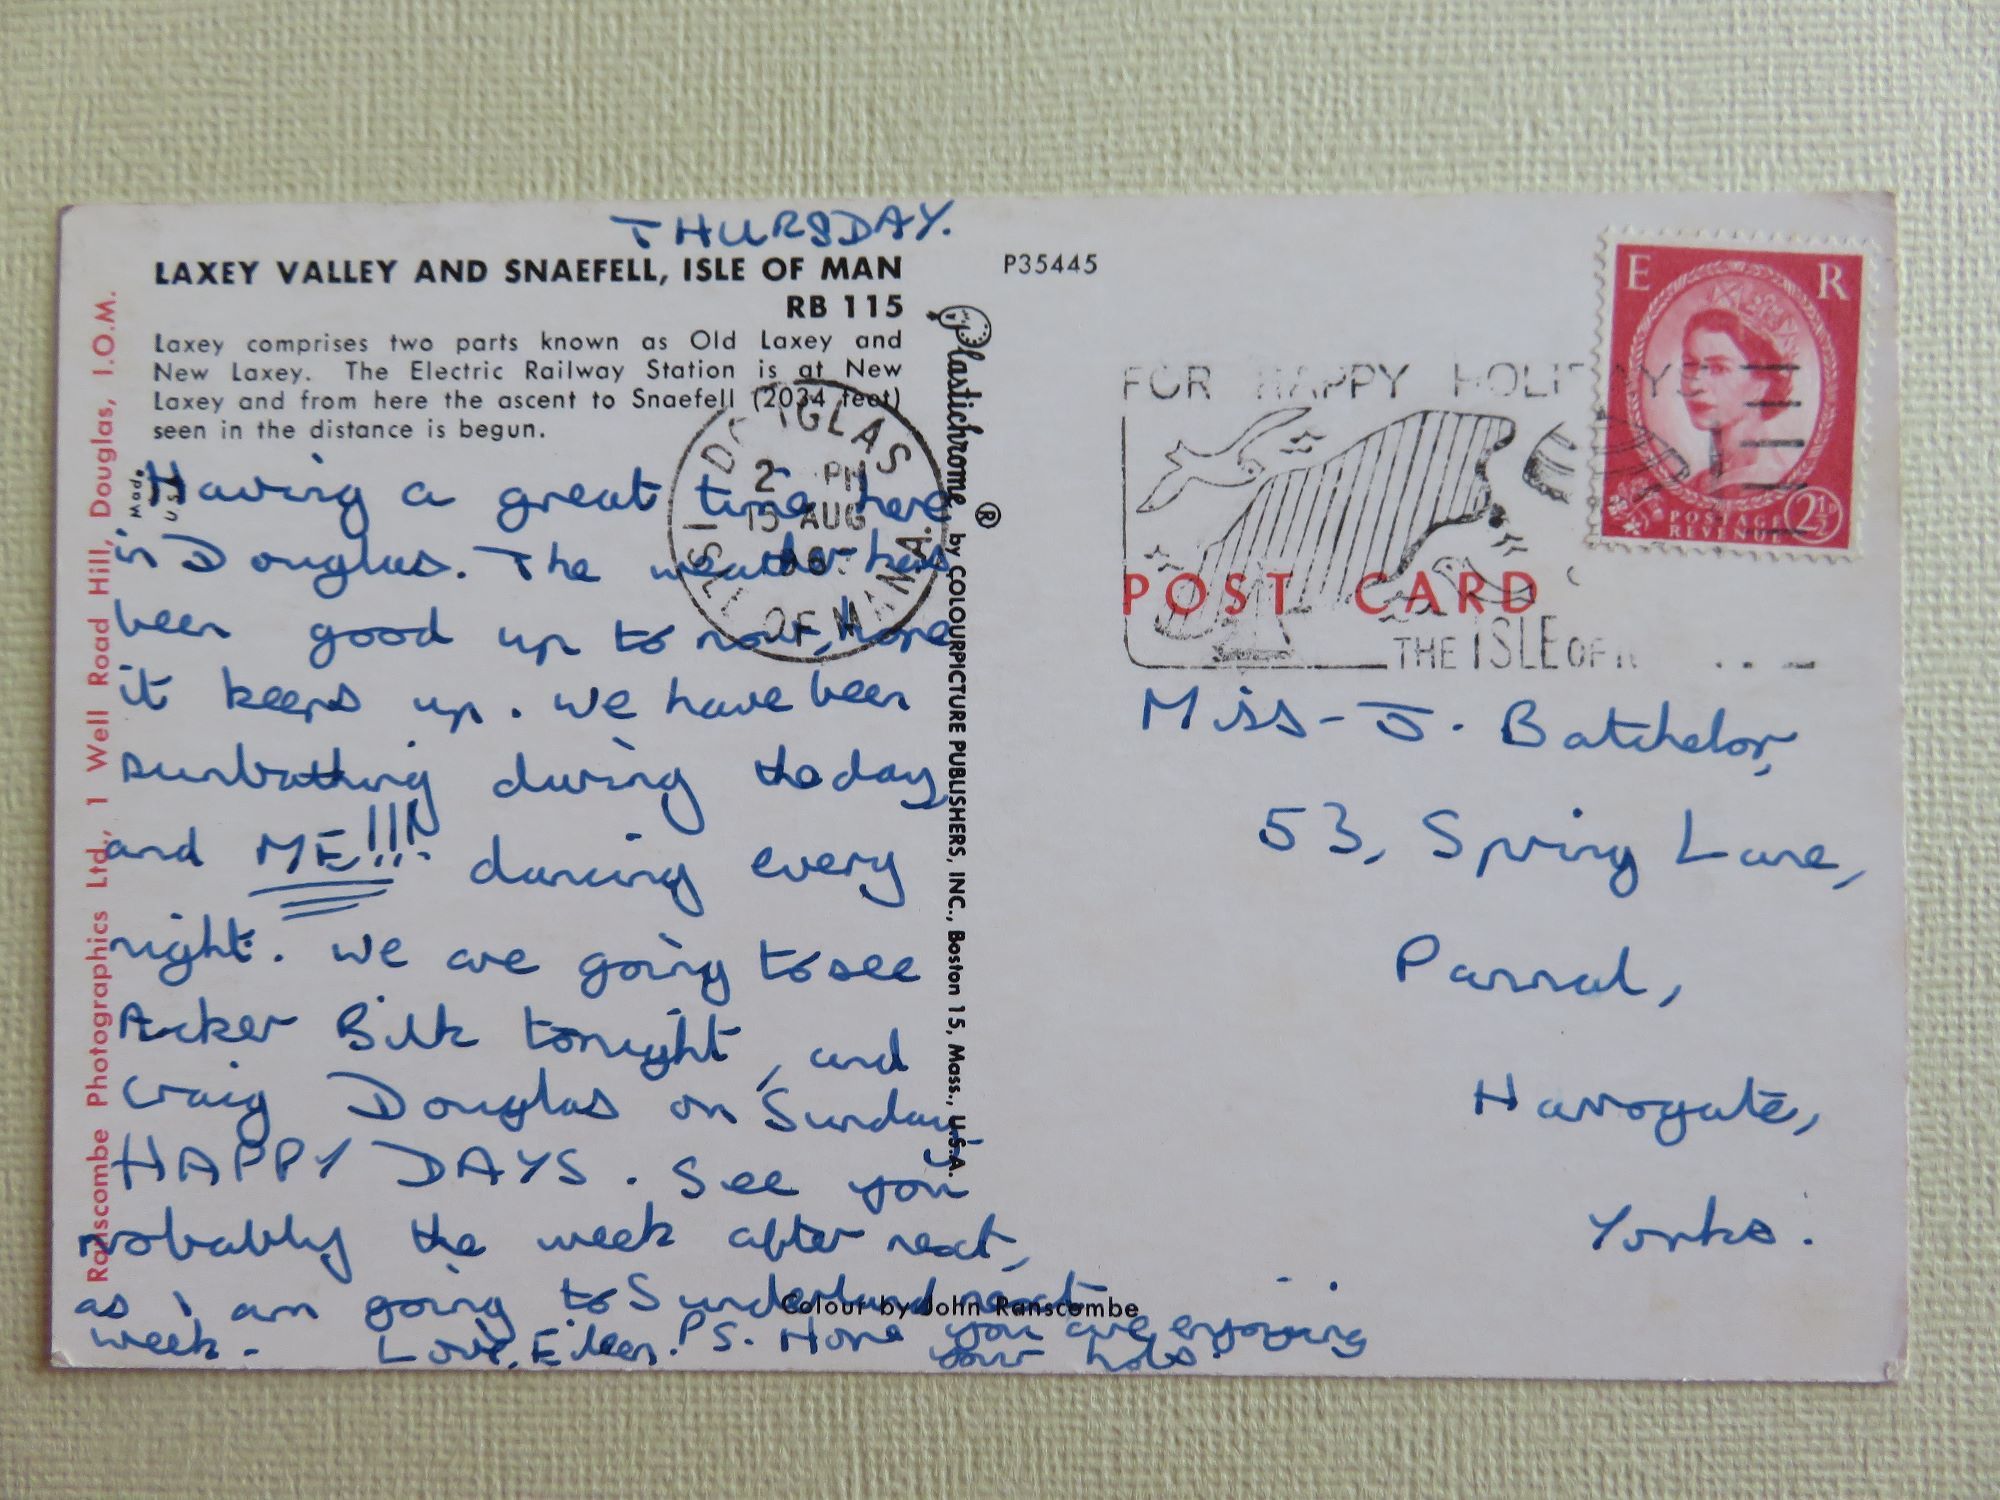 THURSDAY.
LAXEY VALLEY AND SNAEFELL, ISLE OF MAN
RB 115
Laxey comprises two parts known as Old Laxey and
New Laxey. The Electric Railway Station is at New
Laxey and from here the ascent to Snaefell (2034 feet)
seen in the distance is begun.
Having a great time here
in Douglas. The weather has
been good up to now, hope
it keeps up. We have been
sunbathing during the day
and ME!!! dancing every
night. We are going to see
Acker Bilk tonight, and
Craig Douglas on Sunday.
HAPPY DAYS. See you
probably the week after next,
as I am going to Sunderland next
week. Love, Eileen. PS. Hope you are enjoying
your hols.
Colour by John Ranscombe
Ranscombe Photographics Ltd., 1 Well Road Hill, Douglas, I.O.M.
Made
U.S.A.
Plastichrome ® by COLOURPICTURE PUBLISHERS, INC., Boston 15, Mass., U.S.A.
DOUGLAS
2 PM
AUG
ISLE OF MAN
P35445
FOR HAPPY HOLIDAYS
THE ISLE OF
POST CARD
E R
POSTAGE
REVENUE
2½
Miss J. Batchelor,
53, Spring Lane,
Pannal,
Harrogate,
Yorks.